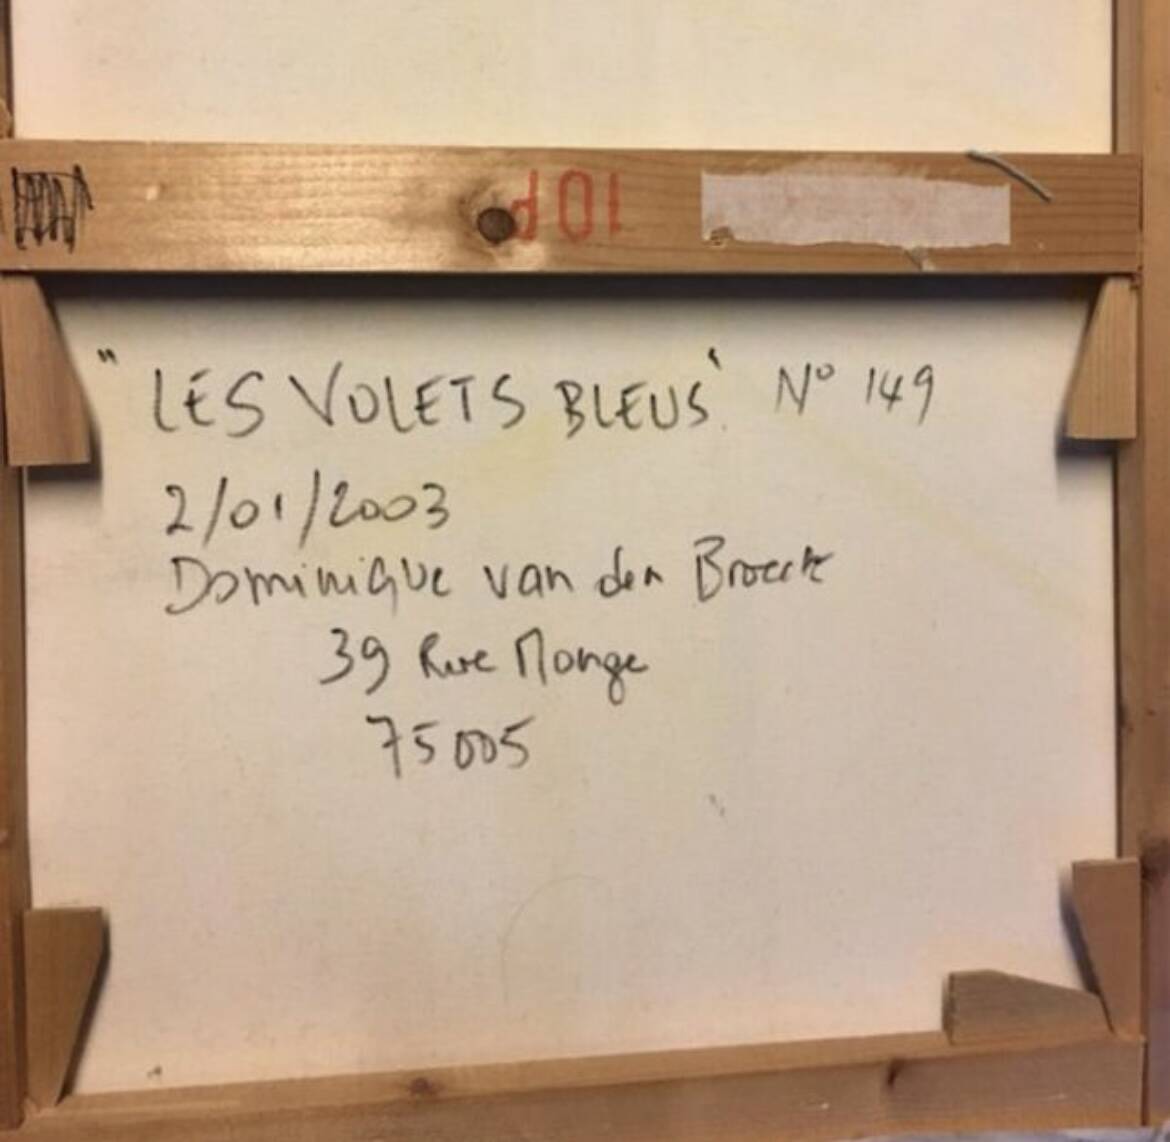 10P
"LES VOLETS BLEUS" N° 149
2/01/2003
Dominique van den Broeck
39 Rue Monge
75005